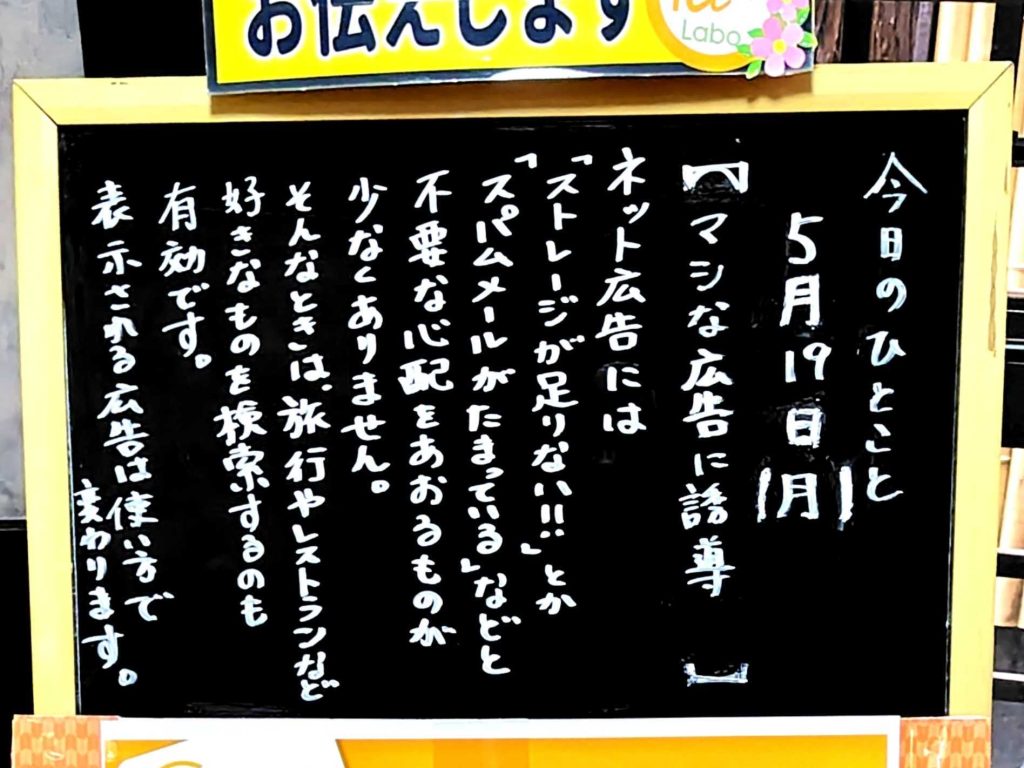 お伝えします
Labo
今日のひとこと
5月19日(月)
【マシな広告に誘導】
ネット広告には
「ストレージが足りない!!」とか
「スパムメールがたまっている」などと
不要な心配をあおるものが
少なくありません。
そんなときは、旅行やレストランなど
好きなものを検索するのも
有効です。
表示される広告は使い方で
変わります。